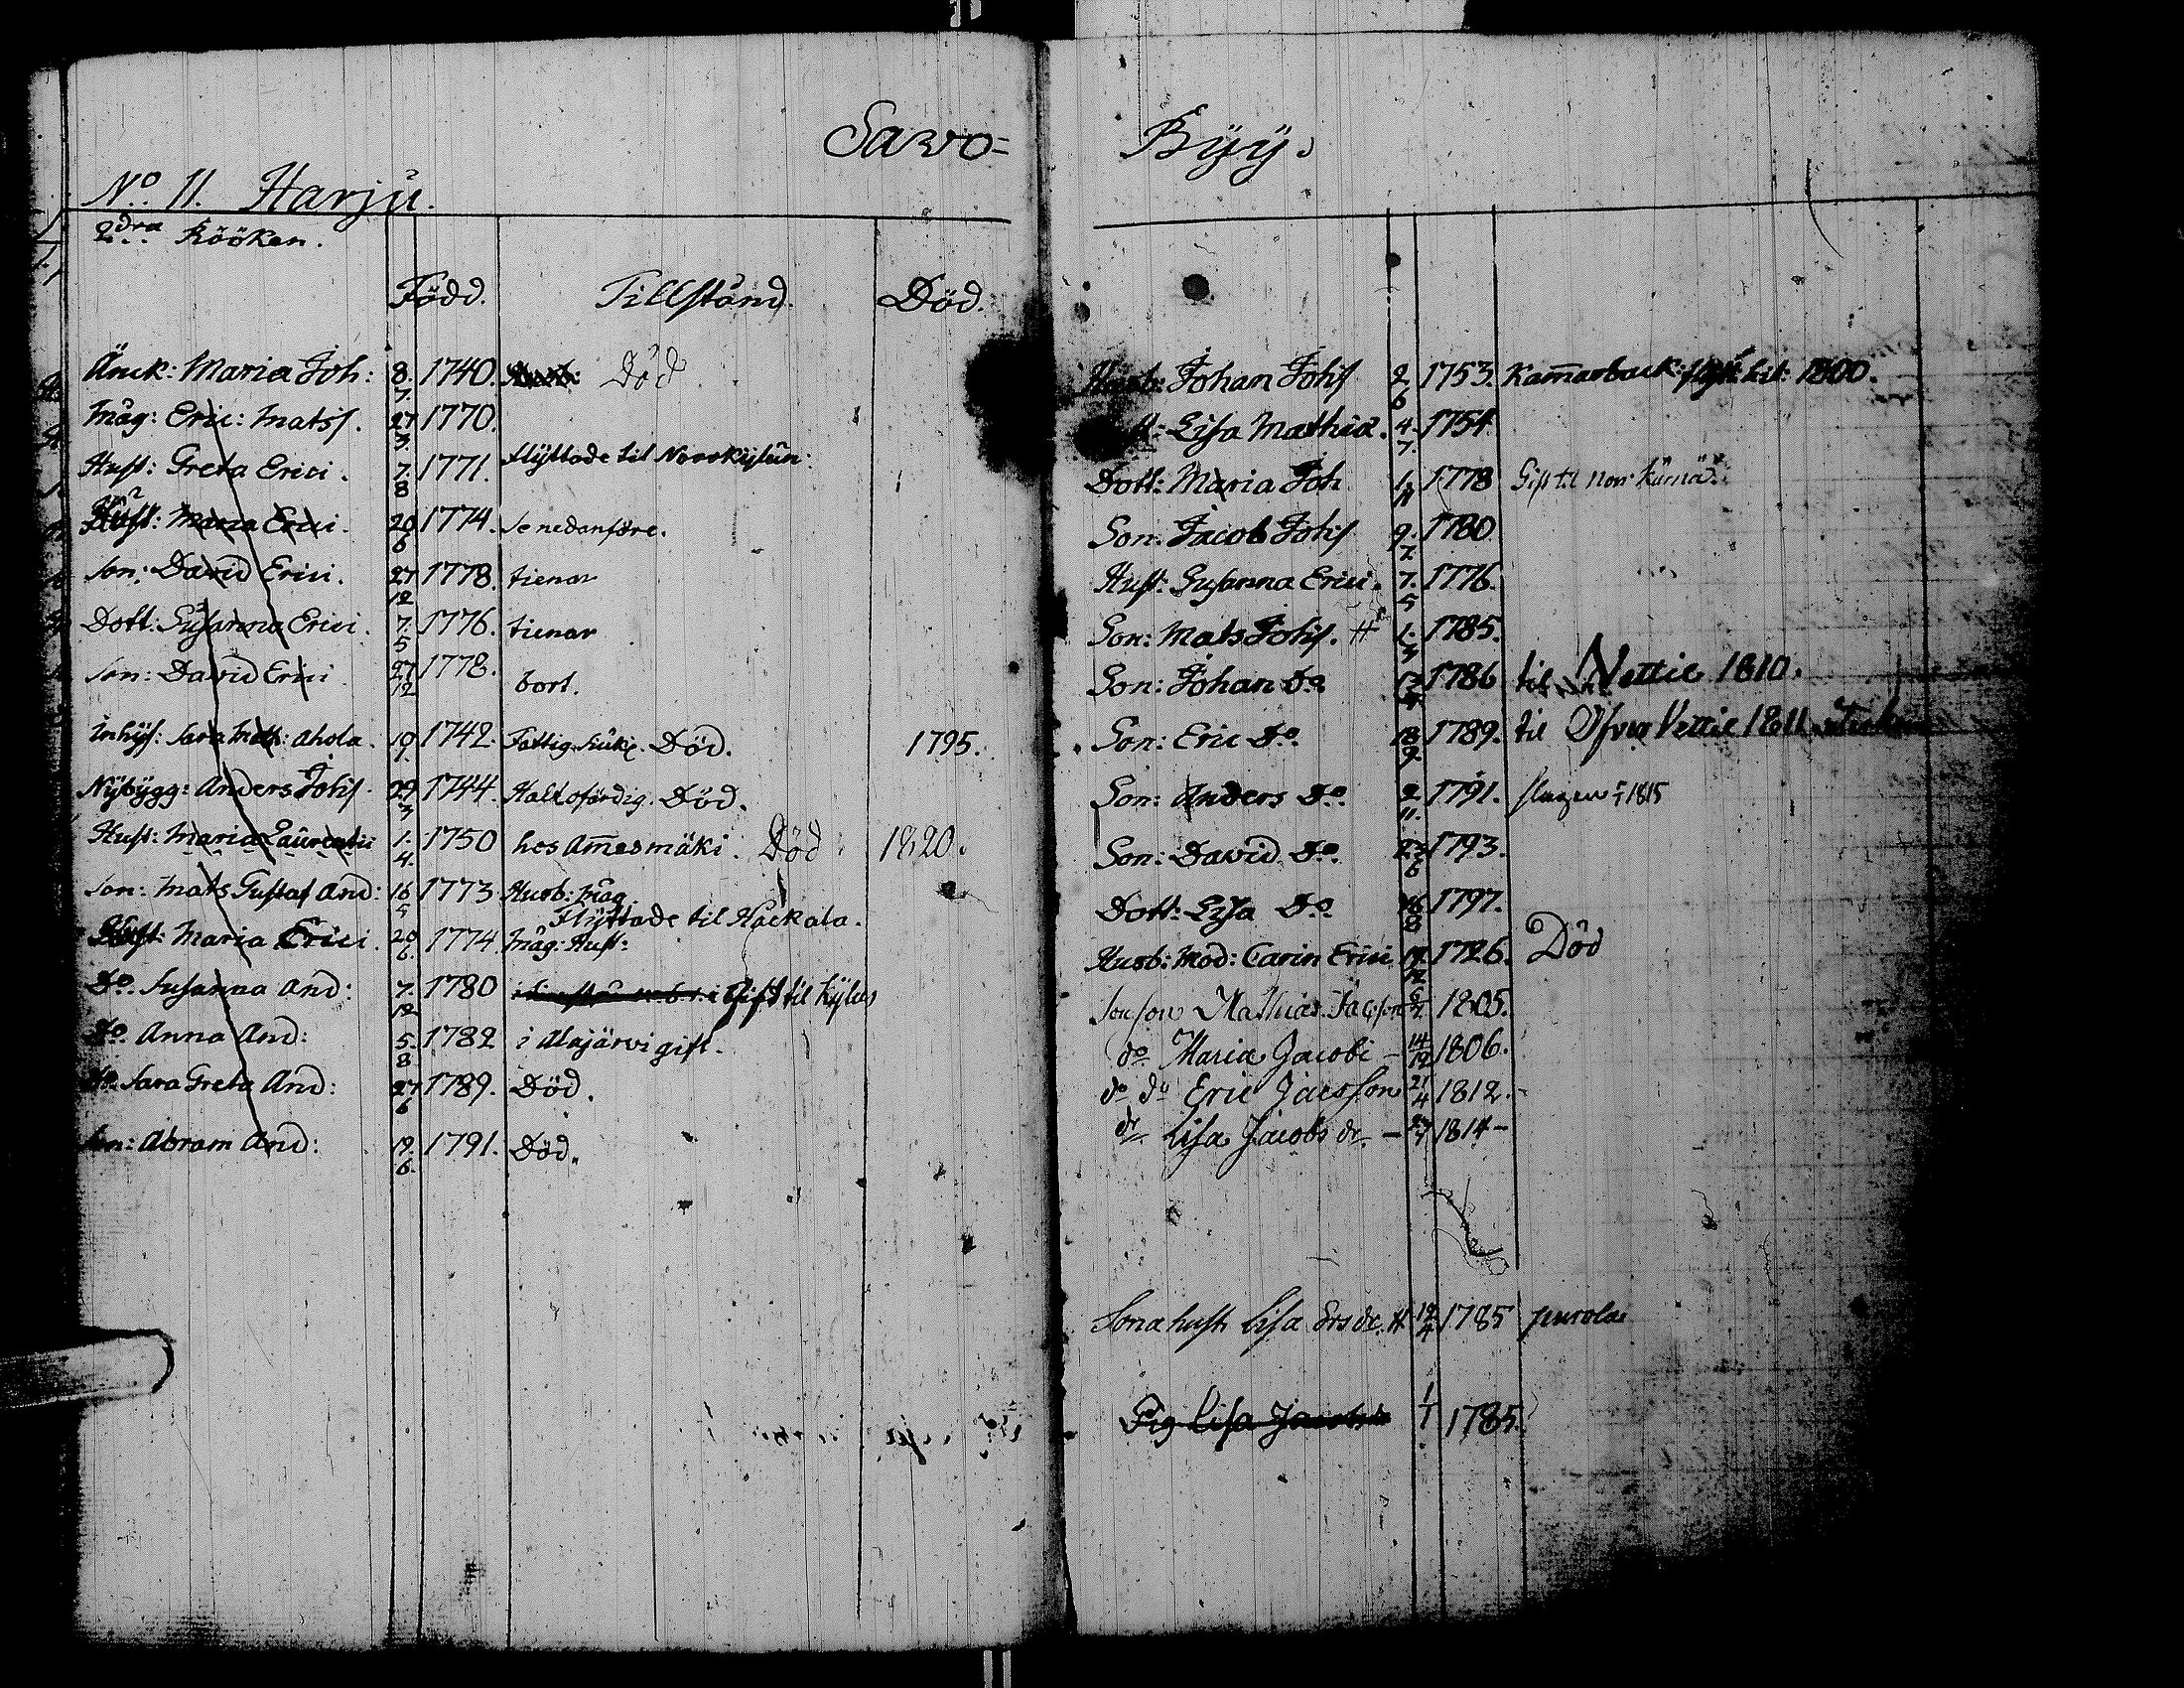 Sawo= Byy.
No. 11. Harju.
2dra Rööken.
Född. Tillstånd. Död.
Änck: Maria Joh: 8/7 1740. Död
Måg: Eric: Matsſ. 27/3 1770.
Huſt: Greta Erici. 7/8 1771. Flyttade til
Maria Erici. 20/6 1774. Se nedanföre.
Son: David Erici. 27/12 1778. tienar
Dott: Suſanna Erici. 7/5 1776. tienar
Son: David Erici 27/12 1778. bort.
Inhyſ: Sara Math: Ahola. 19/9 1742. Fattig. Siuk. Död. 1795.
Nybygg: Anders Johſ. 29/3 1744. Halt ofärdig. Död.
Huſt: Maria Laurentii 1/4 1750 hos Am̄esmäki. Död 1820.
Son: Mats Guſtaf And: 16/5 1773 Husb: Måg.
Flyttade til Hackala.
Huſt: Maria Erici. 20/6 1774 Måg: Huſt:
Do. Suſanna And: 7/12 1780 Gift til
Do. Anna And: 5/8 1782 i Alajärvi gift.
Do. Sara Greta And: 27/6 1789. Död.
Son: Abram And: 19/6 1791. Död.
Husb: Johan Johſ 2/6 1753. Kam̄arback: 1800.
Lisa Mathiæ. 4/7 1754
Dott: Maria Joh 1/11 1778 Gift til
Son: Jacob Johſ 9/7 1780
Huſt: Suſanna Erici. 7/5 1776.
Son: Mats Johſ. # 1/3 1785.
Son: Johan Do. 1786 til Vettie 1810.
Son: Eric Do. 18/9 1789. til Öfver Vettie 1811
Son: Anders Do. 2/11 1791. 1815
Son: David Do. 23/6 1793.
Dott: Liſa Do. 1797.
Husb: Mod: Carin Erici 1726. Död
Sonſon Mathias 1805.
do Maria Jacobi - 14/12 1806.
do do Eric Jacsſon 21/4 1812. -
do Liſa Jacobs dr - 1814 -
Sonahuſt. Liſa Ers dr. # 19/4 1785 purola
Pig Liſa 1/1 1785.